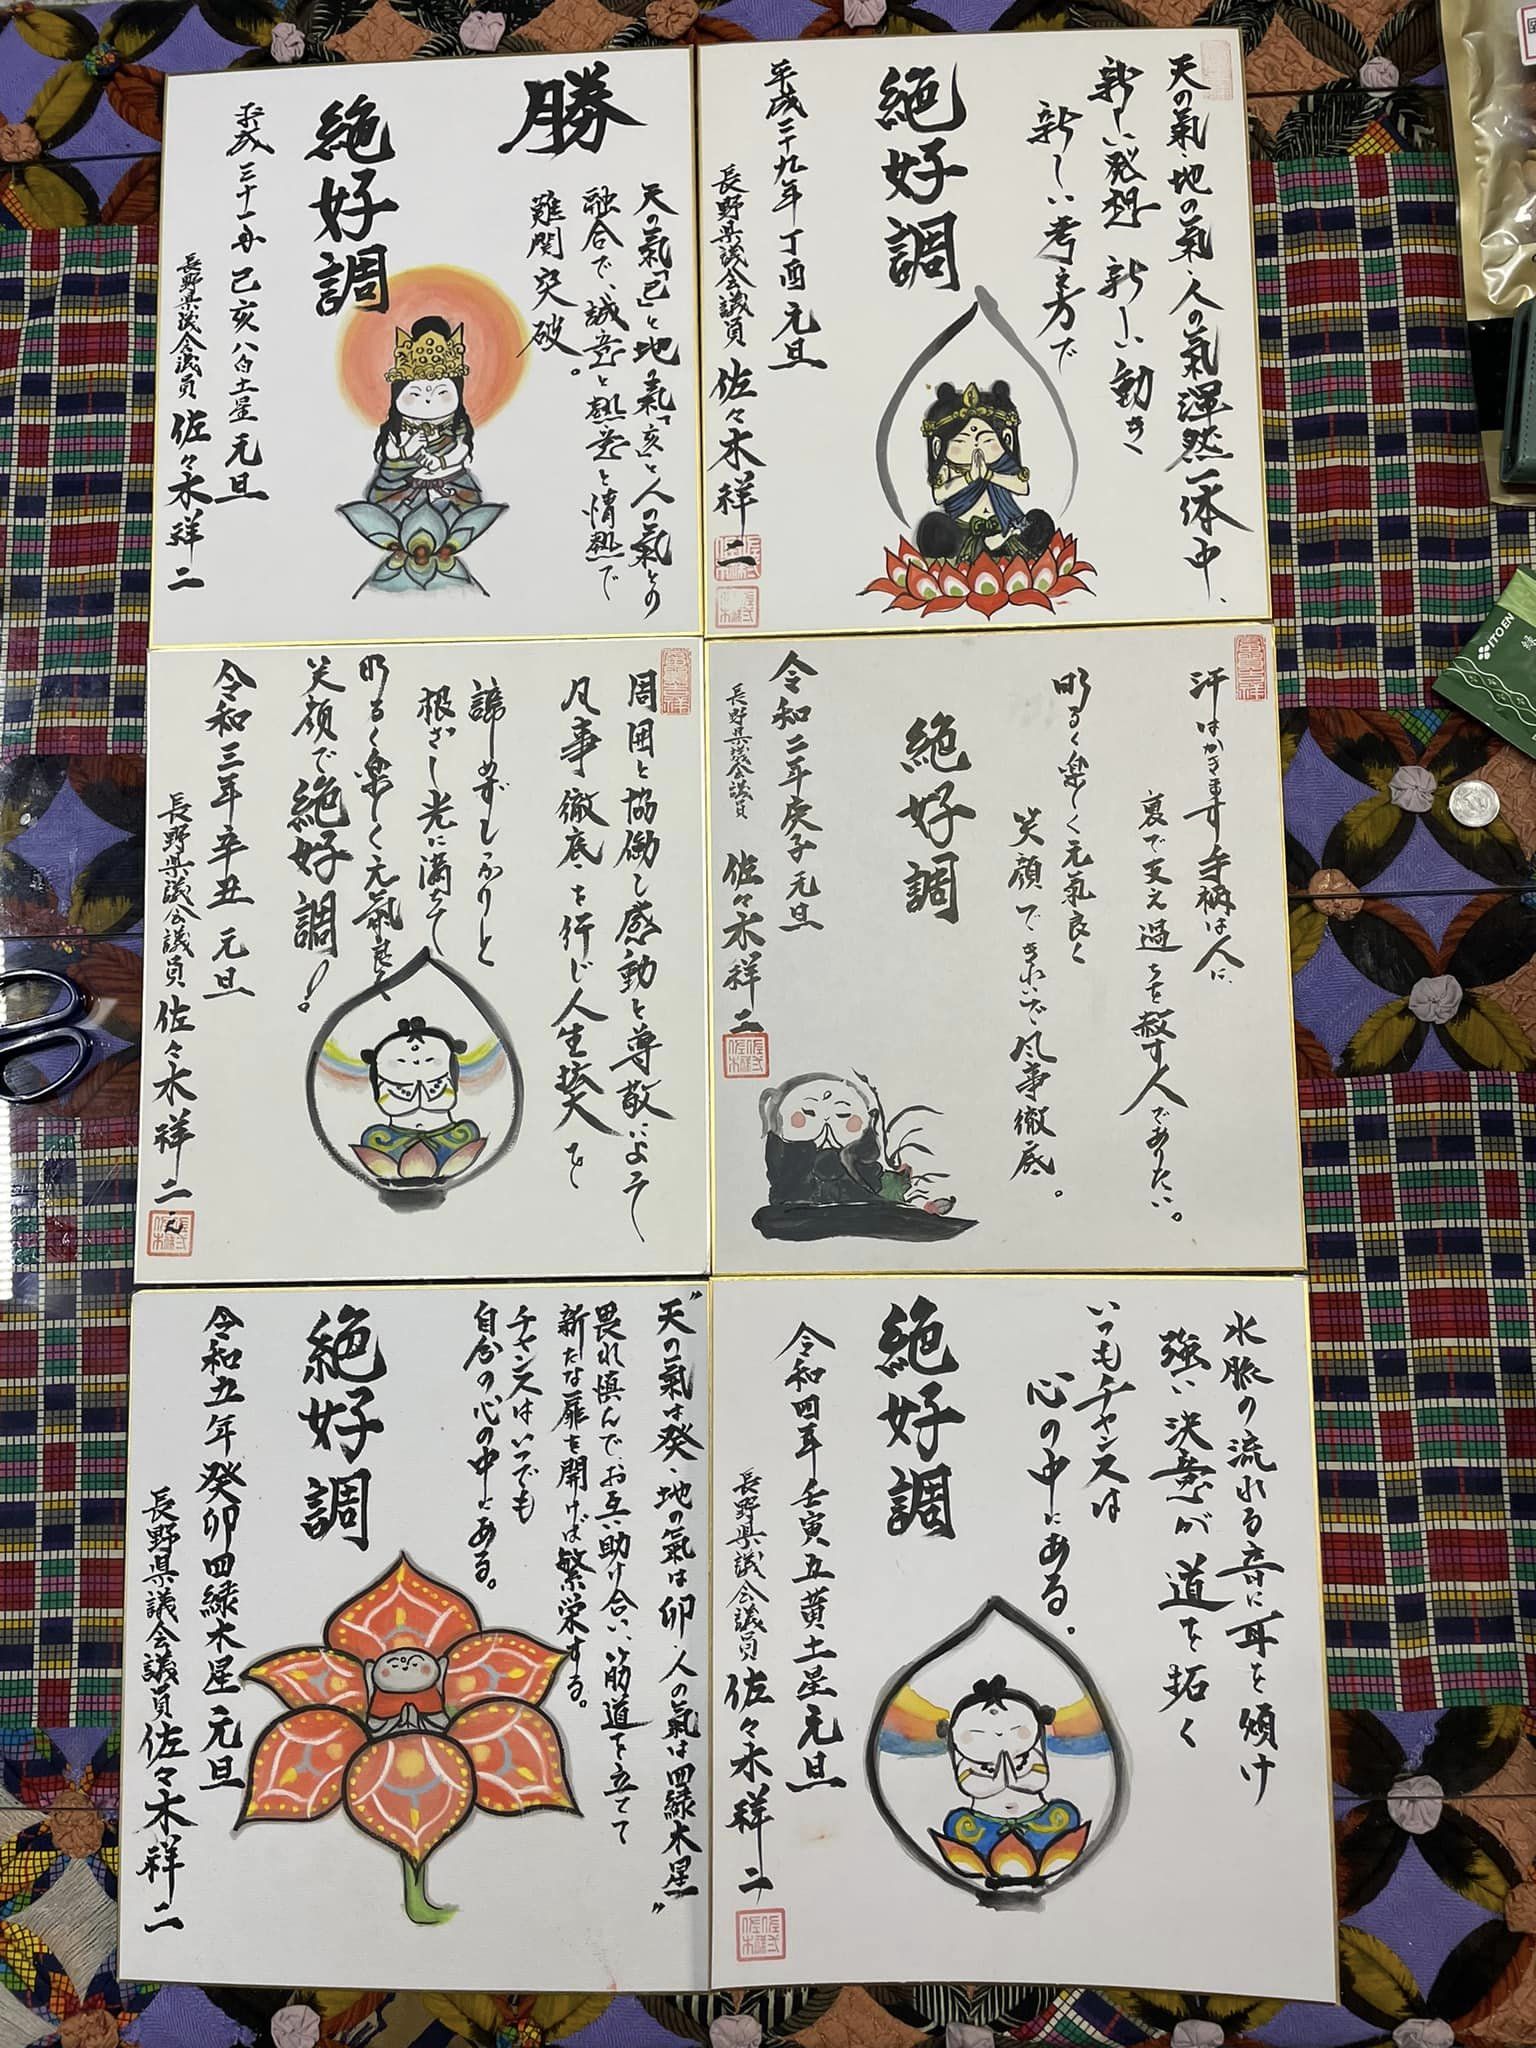 勝
天の氣「己」と地の氣「亥」と人の氣との
融合で、誠意と熱意と情熱で
難関突破。
絶好調
平成三十一年 己亥八白土星 元旦
長野県議会議員 佐々木祥二
天の氣・地の氣・人の氣渾然一体中、
新しい発想 新しい動き
新しい考え方で
絶好調
平成二十九年 丁酉 元旦
長野県議会議員 佐々木祥二
周囲と協働し感動と尊敬によって
凡事徹底を行じ人生拡大を
諦めず
根ざし光に満ちて
明るく楽しく元氣良く
笑顔で絶好調!
令和三年 辛丑 元旦
長野県議会議員 佐々木祥二
汗はかきます手柄は人に
裏で支え過ちを赦す人でありたい。
明るく楽しく元氣良く
笑顔できれいで凡事徹底。
絶好調
令和二年 庚子 元旦
長野県議会議員 佐々木祥二
"天の氣は癸・地の氣は卯・人の氣は四緑木星"
畏れ慎んで、お互い助け合い、筋道を立てて
新たな扉を開けば繁栄する。
チャンスはいつでも
自分の心の中にある。
絶好調
令和五年 癸卯四緑木星 元旦
長野県議会議員 佐々木祥二
水脈の流れる音に耳を傾け
強い決意が道を拓く
いつもチャンスは
心の中にある。
絶好調
令和四年 壬寅五黄土星 元旦
長野県議会議員 佐々木祥二
ITO EN